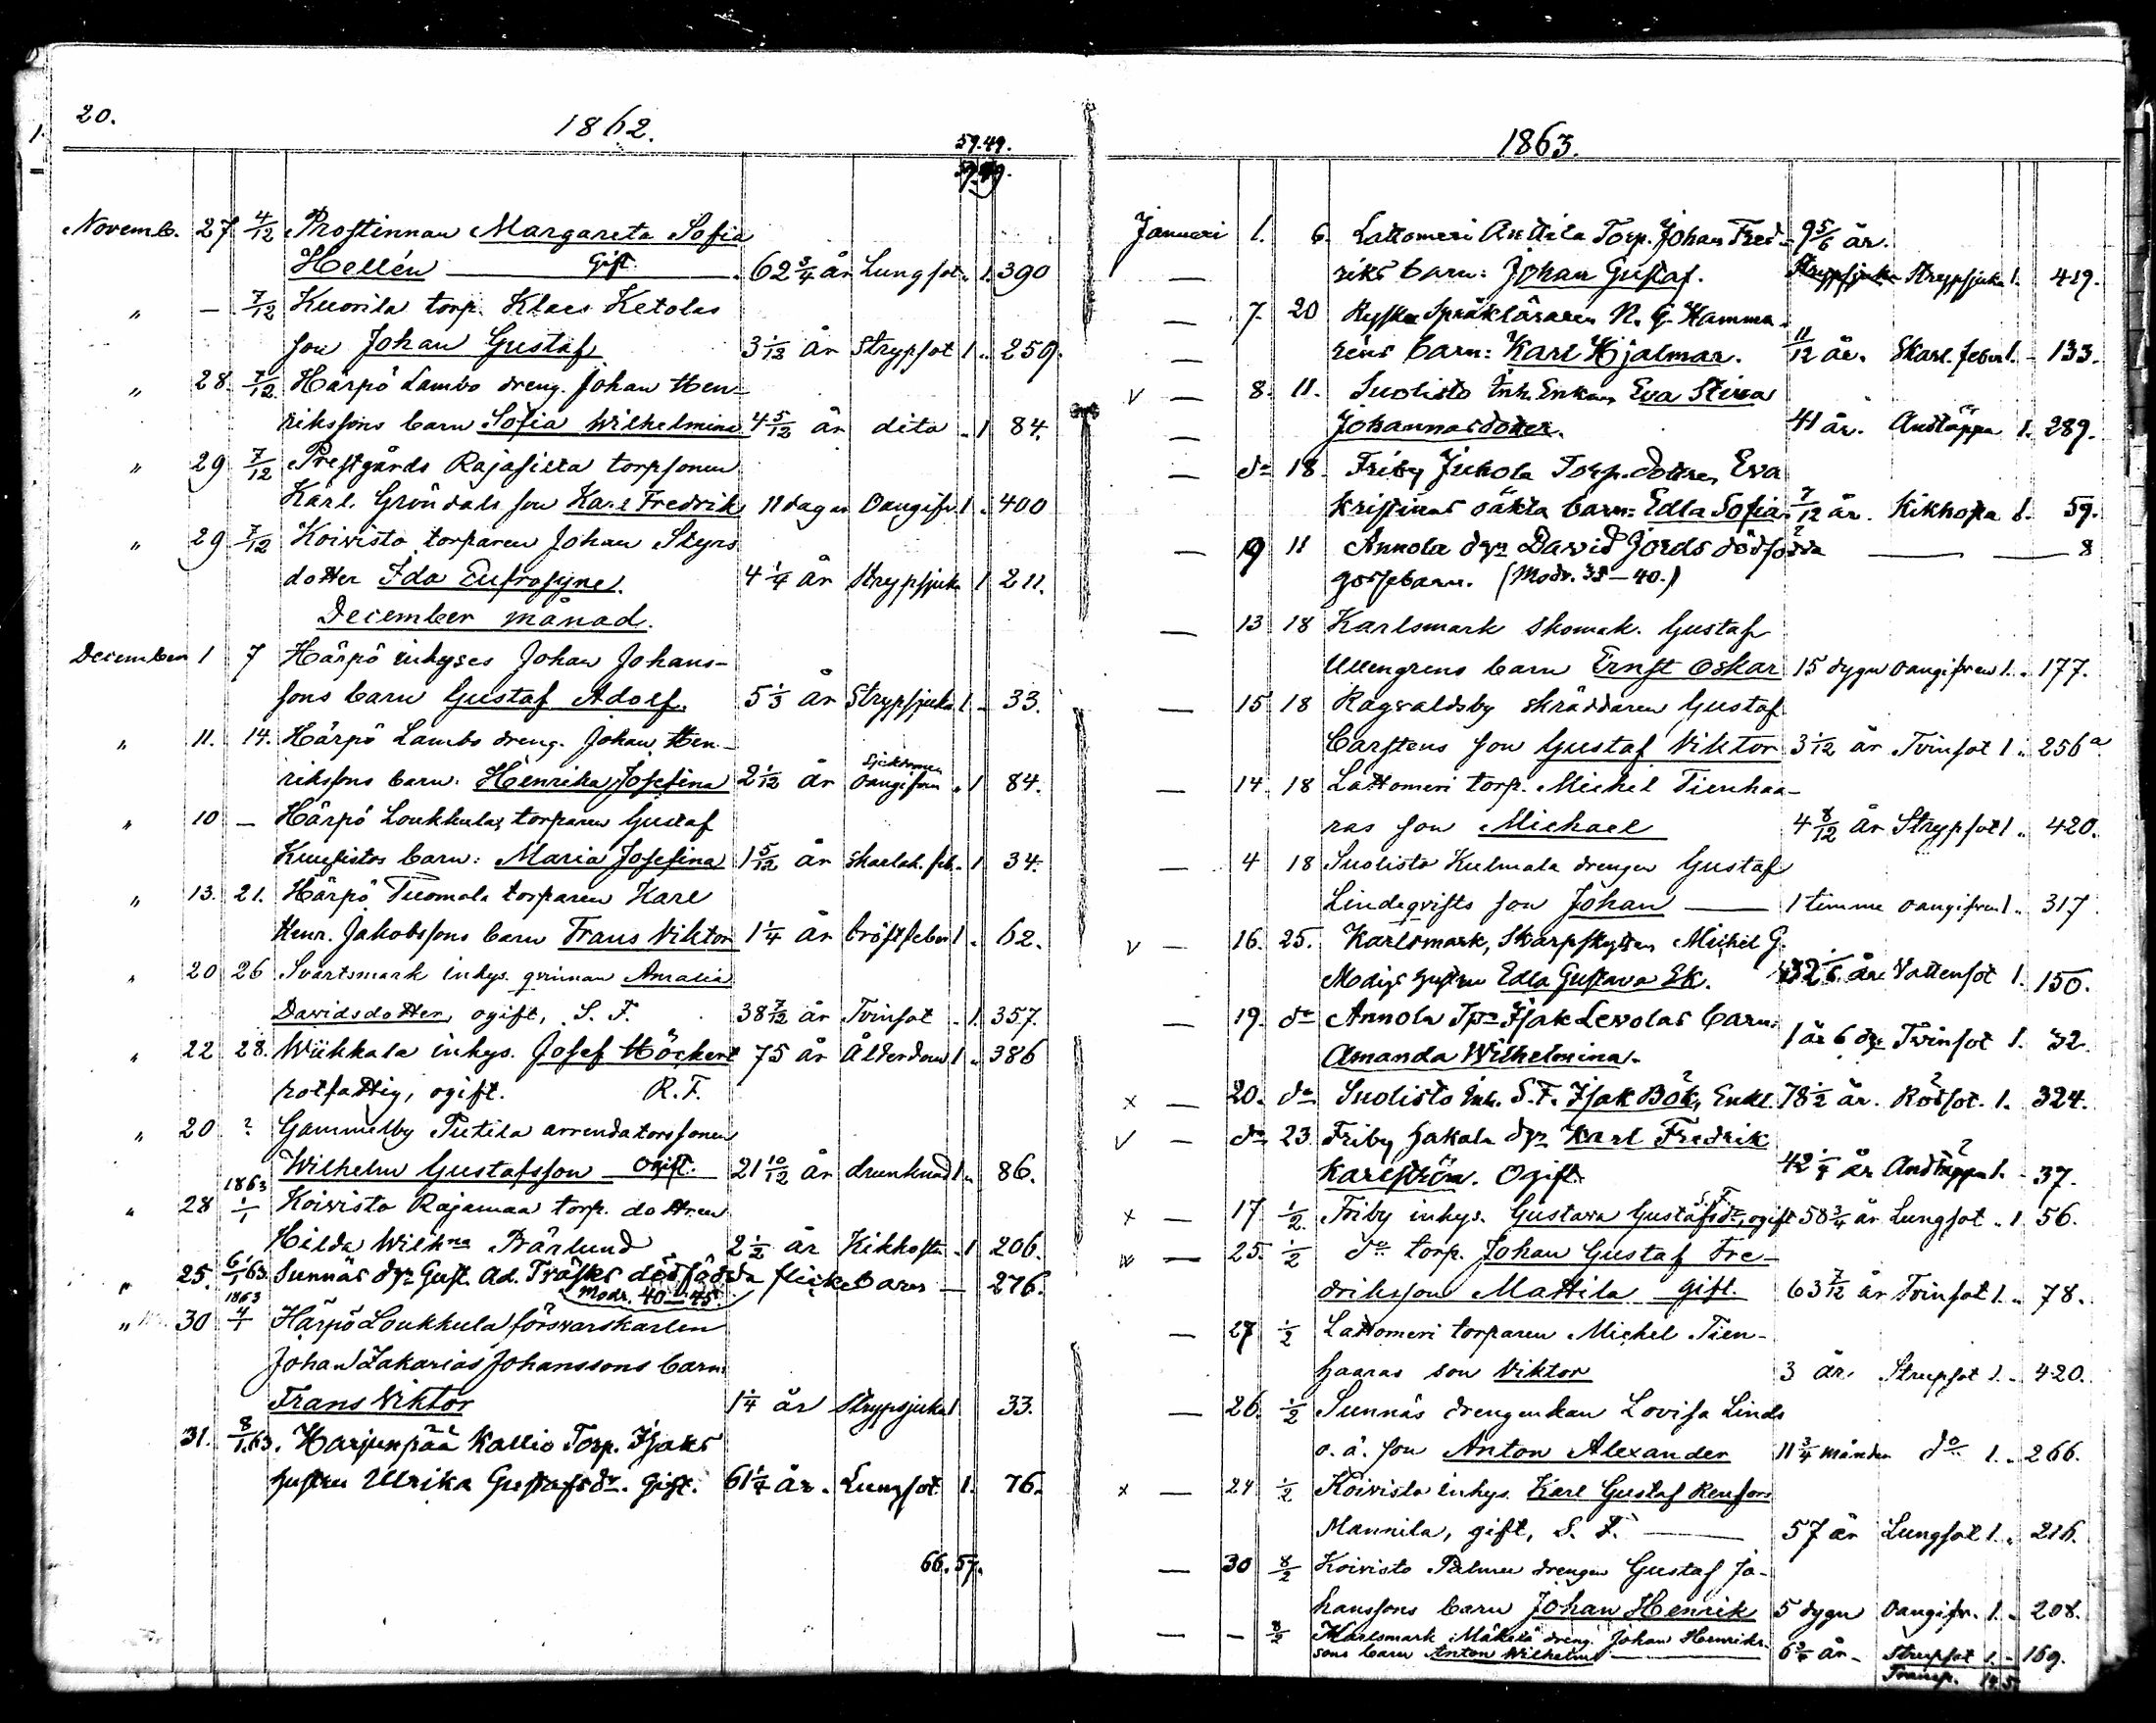 20.
1862.
59.49.
Novemb. 27 4/12 Prostinnan Margareta Sofia
Hellén — Gift. 62 3/4 år Lungsot " 1. 390
" — 7/12 Kuorila torp. Klaes Ketolas
son Johan Gustaf 3 1/12 år Strypsot 1 .. 259.
" 28. 7/12 Härpö Lambo dreng. Johan Hen-
rikssons barn Sofia Wilhelmina 4 5/12 år dito " 1 84.
" 29 7/12 Prestgårds Rajasilta torpsonen
Karl Gröndals son Karl Fredrik 11 dagar Oangifv 1 . 400
" 29 7/12 Koivisto torparen Johan Styrs
dotter Ida Eufrosyne. 4 1/4 år Strypsjuka 1 211.
December månad.
December 1 7 Härpö inhyses Johan Johans-
sons barn Gustaf Adolf. 5 1/3 år Strypsjuka 1 - 33.
" 11. 14. Härpö Lambo dreng. Johan Hen-
rikssons barn: Henrika Josefina 2 1/12 år Sjukdomen oangifven " 1 84.
" 10 — Härpö Loukkula torparen Gustaf
barn: Maria Josefina 1 5/12 år skarlak. feb. - 1 34.
" 13. 21. Härpö Tuomola torparen Karl
Henr. Jakobssons barn Frans Viktor 1 1/4 år bröstfeber 1 . 62.
" 20 26 Svartsmark inhys. qvinnan Amalia
Davidsdotter, ogift, S. F. 38 7/12 år Tvinsot - 1. 357.
" 22 28. Wiikkala inhys. Josef Höckert 75 år Ålderdom 1 " 386
rotfattig, ogift. R. F.
" 20 ? Gammelby Tutila arrendatorssonen
Wilhelm Gustafsson Ogift. 21 10/12 år drunknad 1 " 86.
" 28 1863 1/1 Koivisto Rajamaa torp. dottren
Hilda Wilhna Bärlund 2 1/2 år Kikhosta - 1 206.
" 25. 6/1 63. Sunnäs dgn Gust. Ad. Träsks dödfödda flickebarn — 276.
Modr. 40–45.
" 30 1863 4/1 Härpö Loukkula försvarskarlen
Johan Zakarias Johanssons barn:
Frans Viktor 1 1/4 år Strypsjuka 1 33.
31. 8/1.63. Harjunpää Kallio Torp. Isaks
hustru Ulrika Gustafsdr. Gift. 61 1/4 år. Lungsot 1. 76.
66. 57.
1863.
Januari 1. 6. Lattomeri Anttila Torp. Johan Fred- 9 5/6 år.
— riks barn: Johan Gustaf. Strypsjuka 1. 419.
— 7. 20 Ryska Språkläraren N. G. Hamma-
— réns barn: Karl Hjalmar. 11/12 år. Skarl. feber 1. - 133.
v — 8. 11. Suolisto Inh. Enkan Eva Stina
— Johannesdotter. 41 år. Andtäppa 1. 289.
— do 18. Friby Juhola Torp. dottren Eva
Kristinas oäkta barn: Edla Sofia. 7/12 år. Kikhosta 1. 59.
— 9 11 Annola dgn David Jords dödfödda — — 8
gossebarn. (Modr. 35–40.)
— 13 18 Karlsmark skomak. Gustaf
Ullengrens barn Ernst Oskar 15 dygn oangifven 1. . 177.
— 15 18 Ragvaldsby skräddaren Gustaf
Carstens son Gustaf Viktor 3 1/12 år Tvinsot 1 .. 256a
— 14. 18 Lattomeri torp. Michel Tienhaa-
ras son Michael 4 8/12 år Strypsot 1 .. 420.
— 4 18 Suolisto Kulmala drengen Gustaf
Lindeqvists son Johan — 1 timme oangifven 1 .. 317.
v — 16. 25. Karlsmark, Skarpskytten Michel G.
Modigs hustru Edla Gustava Ek. 32 1/6 år Vattensot 1. 150.
— 19. do Annola Tpn Isak Levolas barn:
Amanda Wilhelmina. 1 år 6 dgr Tvinsot 1. 32.
x — 20. do Suolisto Inh. S. F. Isak Bök, Enkl. 78 1/2 år. Rötsot. 1. 324.
v — do 23. Friby Jakola dgn Karl Fredrik
Karlström. Ogift. 42 1/4 år Andtäppa 1. - 37.
x — 17 1/2. Friby inhys. Gustava Gustafsdr, S. F. ogift 58 3/4 år Lungsot .. 1 56.
— 25. 1/2 do torp. Johan Gustaf Fre-
driksson Mattila gift. 63 7/12 år Tvinsot 1. " 78.
— 27 1/2 Lattomeri torparen Michel Tien-
haaras son Viktor 3 år. Strupsot 1. - 420.
— 26. 1/2 Sunnäs drengenkan Lovisa Linds
o. ä. son Anton Alexander 11 3/4 månder do 1. .. 266.
x — 24 1/2 Koivisto inhys. Karl Gustaf Renfors
Mannila, gift, S. F. — 57 år Lungsot 1. . 216.
— 30 8/2 Koivisto Palmu drengen Gustaf Jo-
hanssons barn Johan Henrik 5 dygn Oangifv. 1. - 208.
— — 8/2 Karlsmark Mäkelä dreng. Johan Henriks-
sons barn Anton Wilhelm — 6 3/4 år - Strupsot 1. - 169.
Transp. 14. 5.